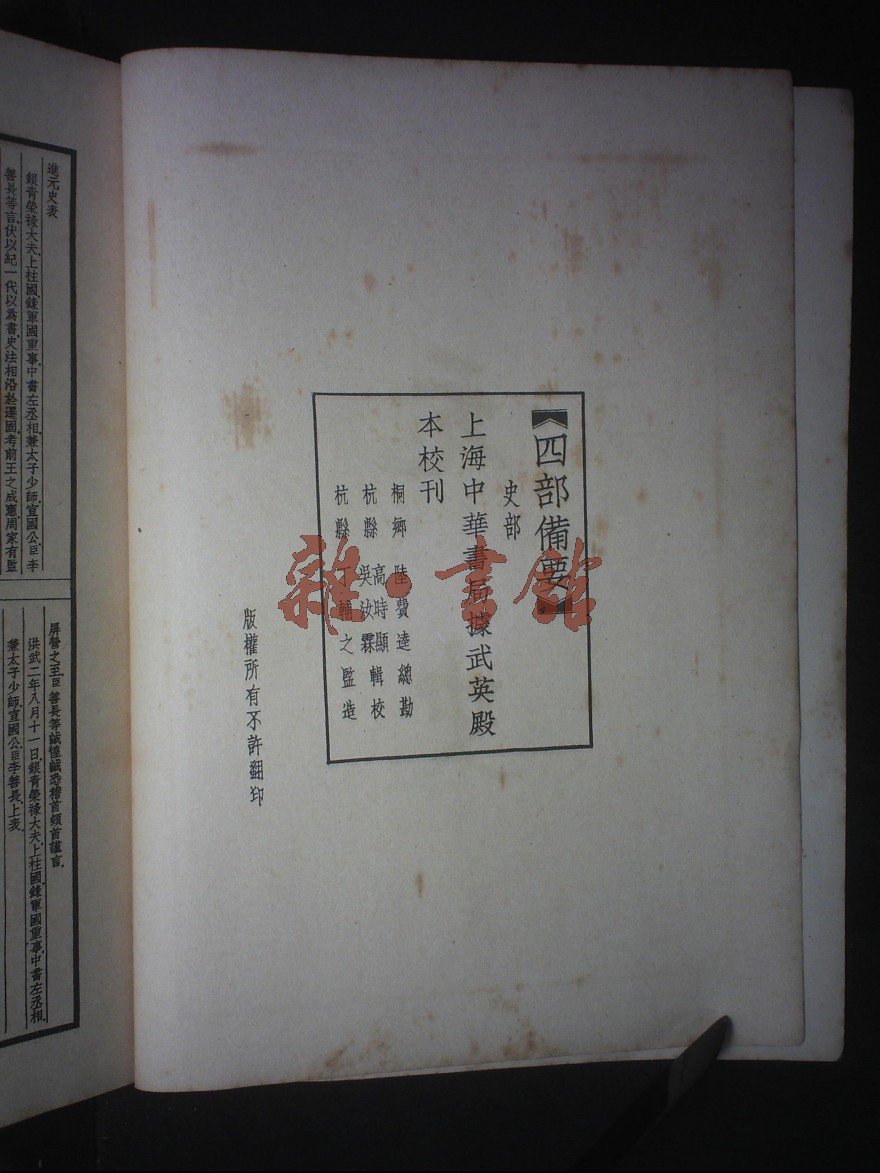 四部備要
史部
上海中華書局據武英殿
本校刊
桐鄉 陸費逵總勘
杭縣 高時顯 吳汝霖 輯校
杭縣 丁輔之監造
版權所有不許翻印
雜·書館
進元史表
銀青榮祿大夫上柱國錄軍國重事中書左丞相兼太子少師宣國公臣李
善長等言伏以紀一代以為書史法相沿於遷固考前王之成憲周家有監
屏營之至臣善長等誠惶誠恐稽首頓首謹言
洪武二年八月十一日銀青榮祿大夫上柱國錄軍國重事中書左丞相
兼太子少師宣國公臣李善長上表